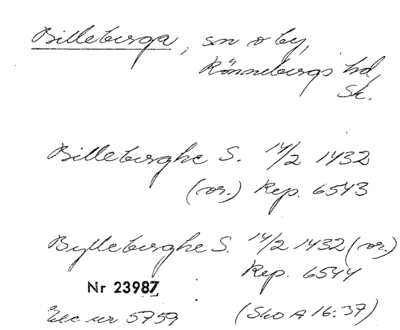 Billeberga, sn o by,
Rönnebergs hd,
Sk.
Billeberghe S. 14/2 1432
(or.) Rep. 6543
Bylleberghe S. 14/2 1432 (or.)
Rep. 6544
Nr 23987
Elc nr 5759 (Sko A 16:37)